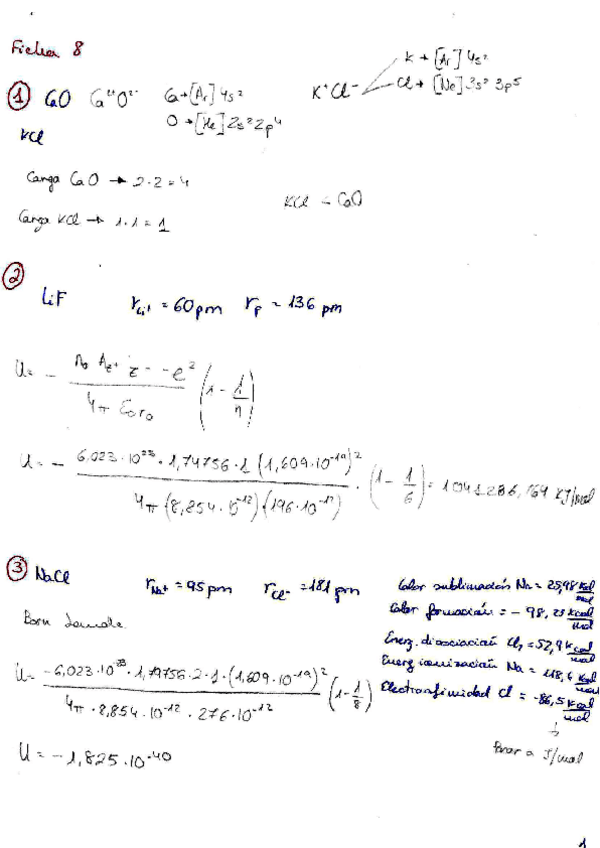 Ficha 8
① CaO Ca²⁺O²⁻ Ca→[Ar]4s²
O→[He]2s²2p⁴
K⁺Cl⁻
K→[Ar]4s²
Cl→[Ne]3s²3p⁵
KCl
Carga CaO → 2·2=4
Carga KCl → 1·1=1
KCl CaO
② LiF r_Li⁺ = 60pm r_F = 136 pm
U= -
4π ε₀r₀
(1 - 1/n)
U= - 6,023·10²³·1,74756·1(1,609·10⁻¹⁹)² / 4π(8,854·10⁻¹²)(196·10⁻¹²) · (1 - 1/6) = 1041286,769 KJ/mol
③ NaCl r_Na⁺ = 95pm r_Cl⁻ = 181pm
Calor sublimación Na = 25,98 Kcal/mol
Calor formación = -98,23 Kcal/mol
Energ. disociación Cl₂ = 52,9 Kcal/mol
Energ ionización Na = 118,4 Kcal/mol
Electroafinidad Cl = -86,5 Kcal/mol
↓
Pasar a J/mol
Born Lande
U= -6,023·10²³·1,74756·2·1·(1,609·10⁻¹⁹)² / 4π·8,854·10⁻¹²·276·10⁻¹² (1-1/8)
U = -1,825·10⁻⁴⁰
1